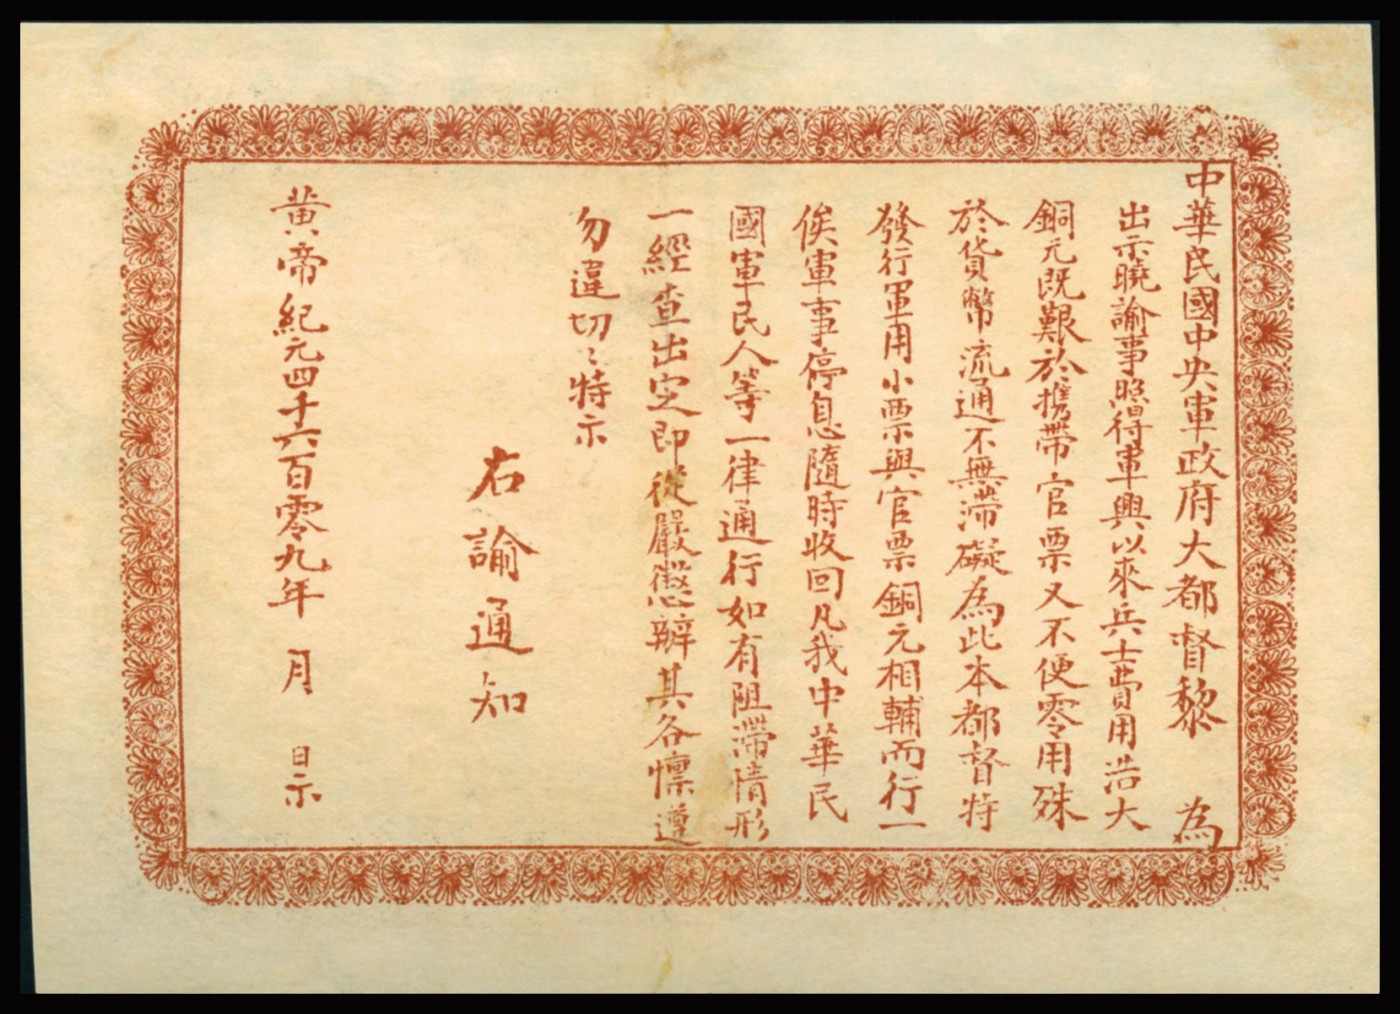 中華民國中央軍政府大都督黎 為
出示曉諭事照得軍興以來兵士費用浩大
銅元既艱於攜帶官票又不便零用殊
於貨幣流通不無滯礙為此本都督特
發行軍用小票與官票銅元相輔而行一
俟軍事停息隨時收回凡我中華民
國軍民人等一律通行如有阻滯情形
一經查出定即從嚴懲辦其各懍遵
勿違切〻特示
右諭通知
黃帝紀元四千六百零九年 月 日示